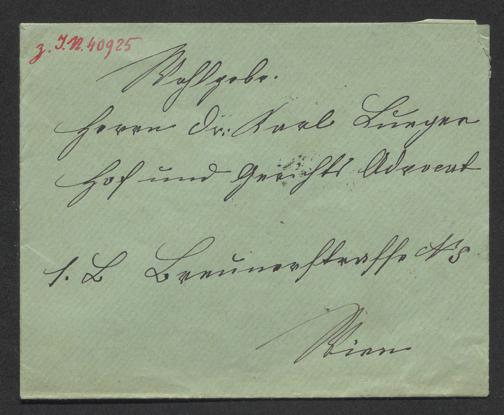 z. I.N. 40925
Wohlgebr.
Herrn Dr. Karl Lueger
Hof und Gerichts Advocat
1. B Breunerstrasse No 8
Wien